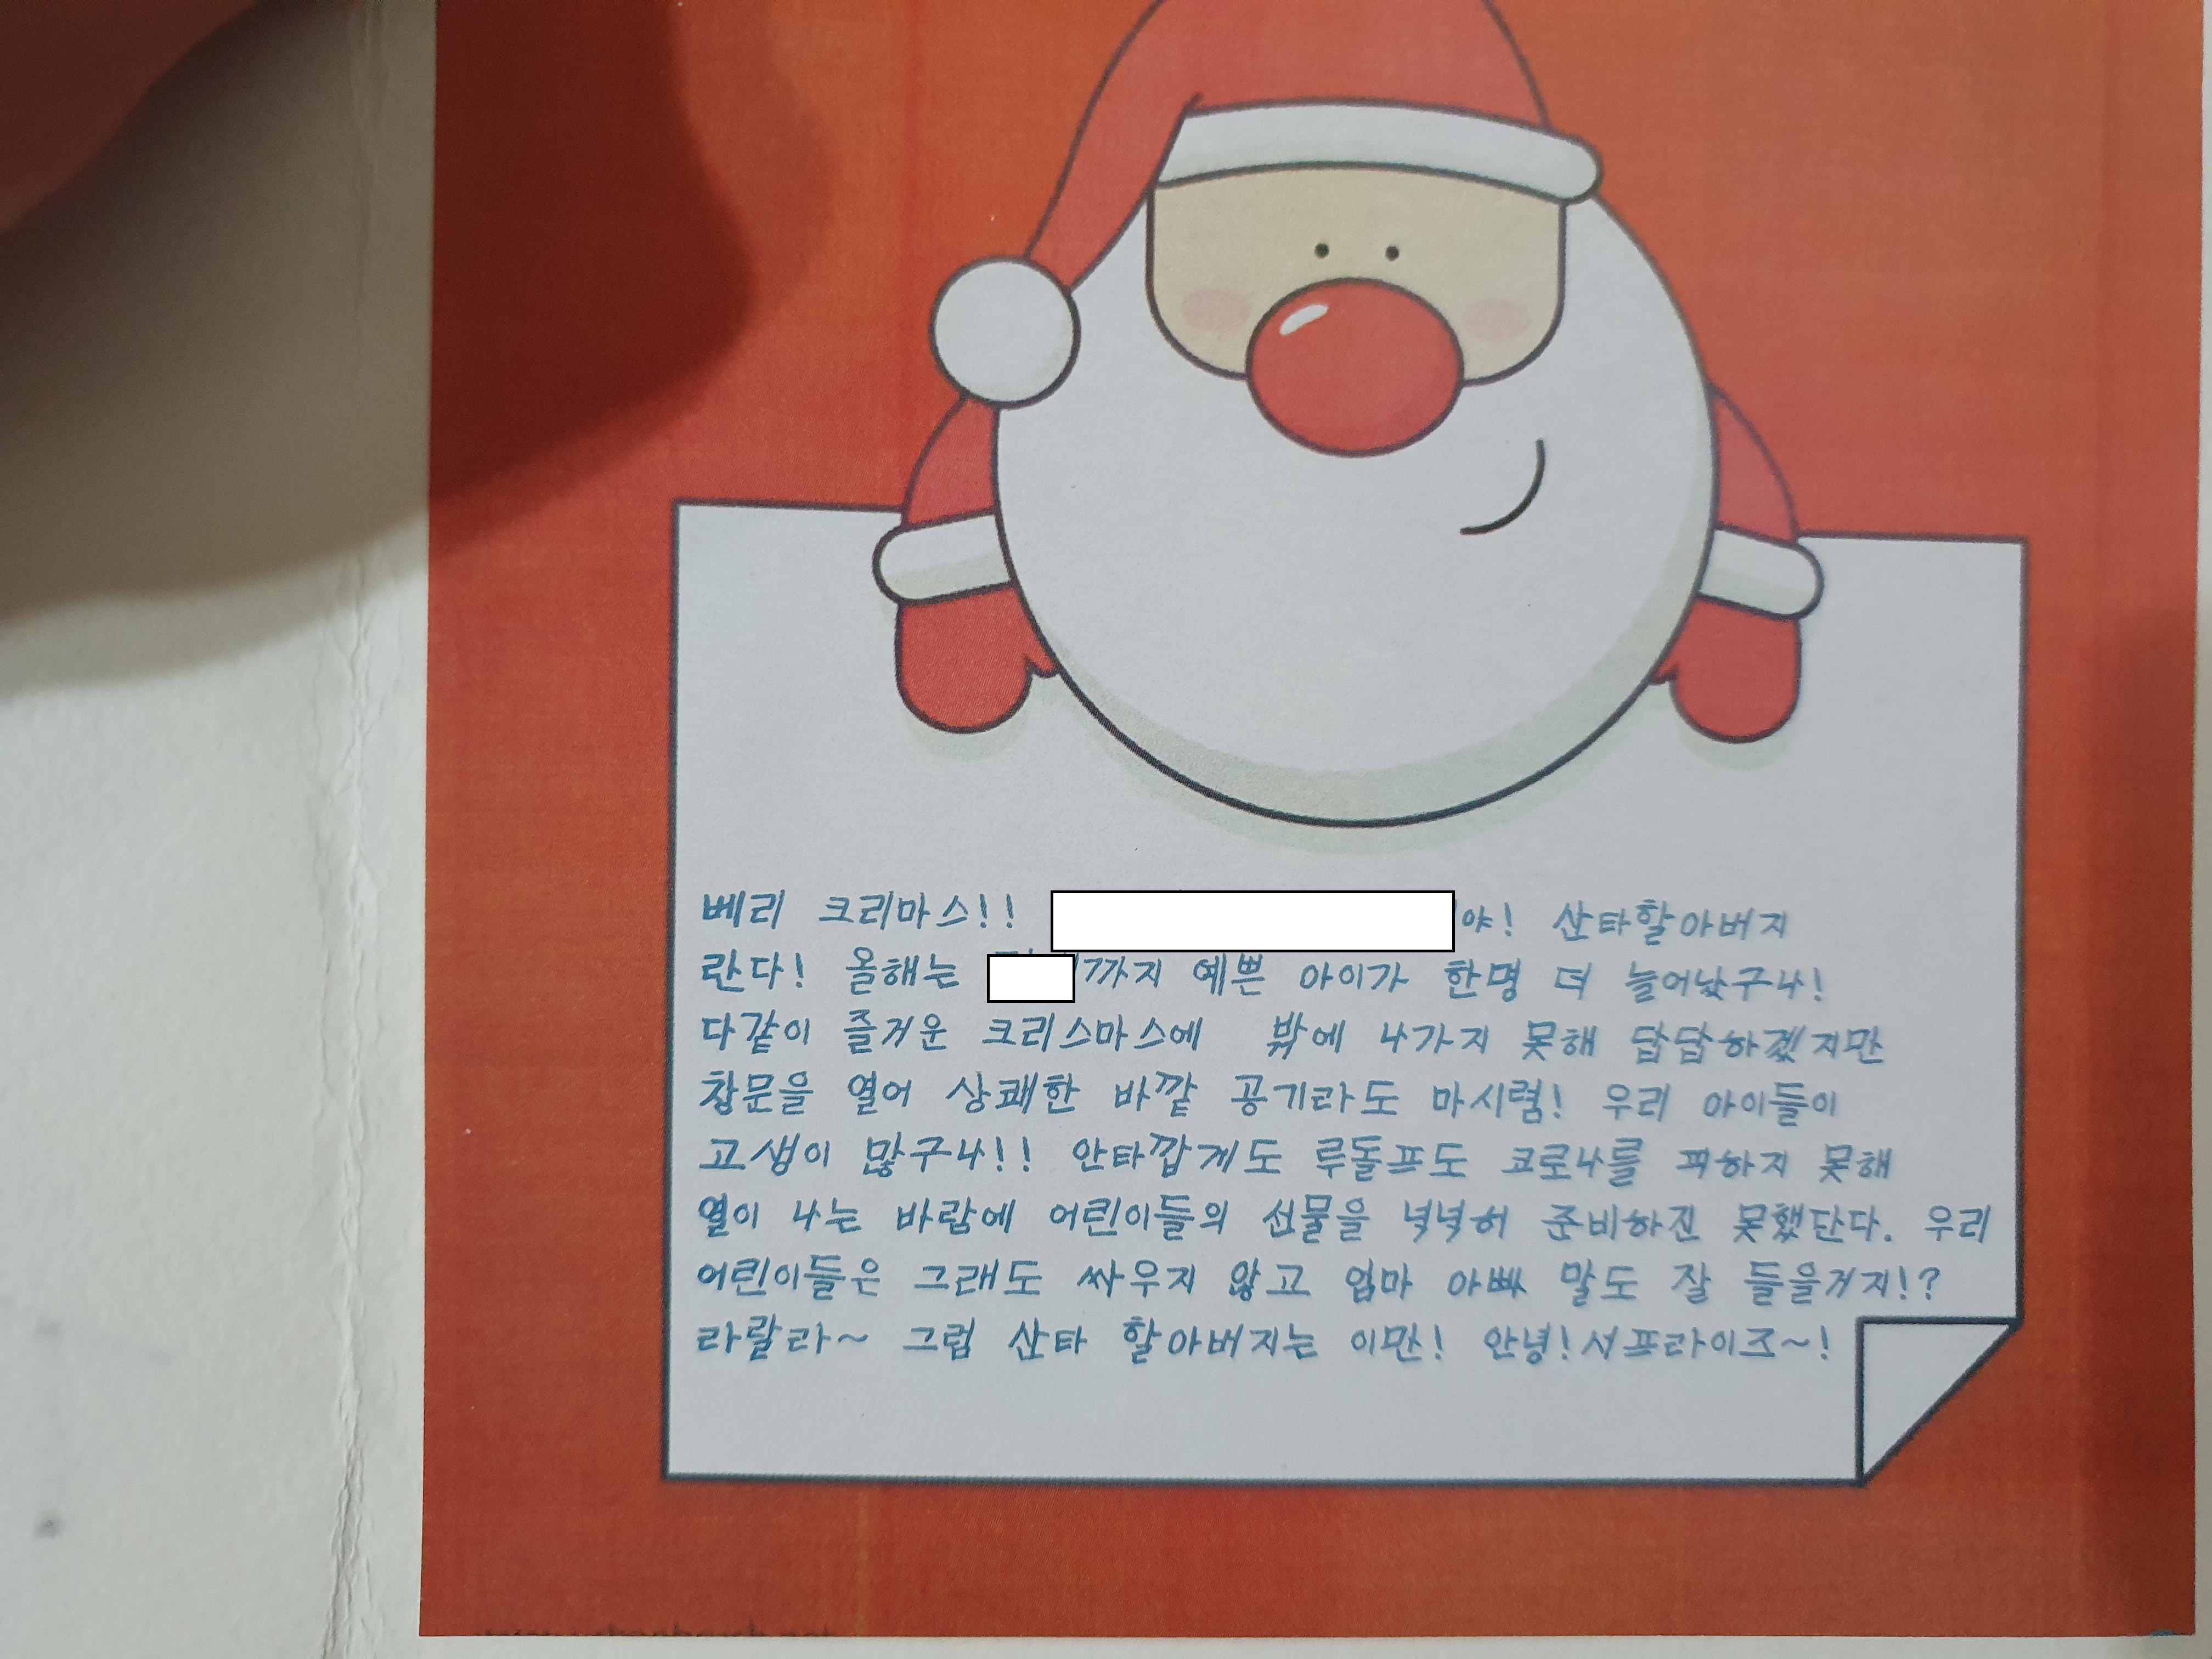 베리 크리마스!! 야! 산타할아버지
란다! 올해는 까지 예쁜 아이가 한명 더 늘어났구나!
다같이 즐거운 크리스마스에 밖에 나가지 못해 답답하겠지만
창문을 열어 상쾌한 바깥 공기라도 마시렴! 우리 아이들이
고생이 많구나!! 안타깝게도 루돌프도 코로나를 피하지 못해
열이 나는 바람에 어린이들의 선물을 넉넉히 준비하진 못했단다. 우리
어린이들은 그래도 싸우지 않고 엄마 아빠 말도 잘 들을거지!?
라랄라~ 그럼 산타 할아버지는 이만! 안녕! 서프라이즈~!